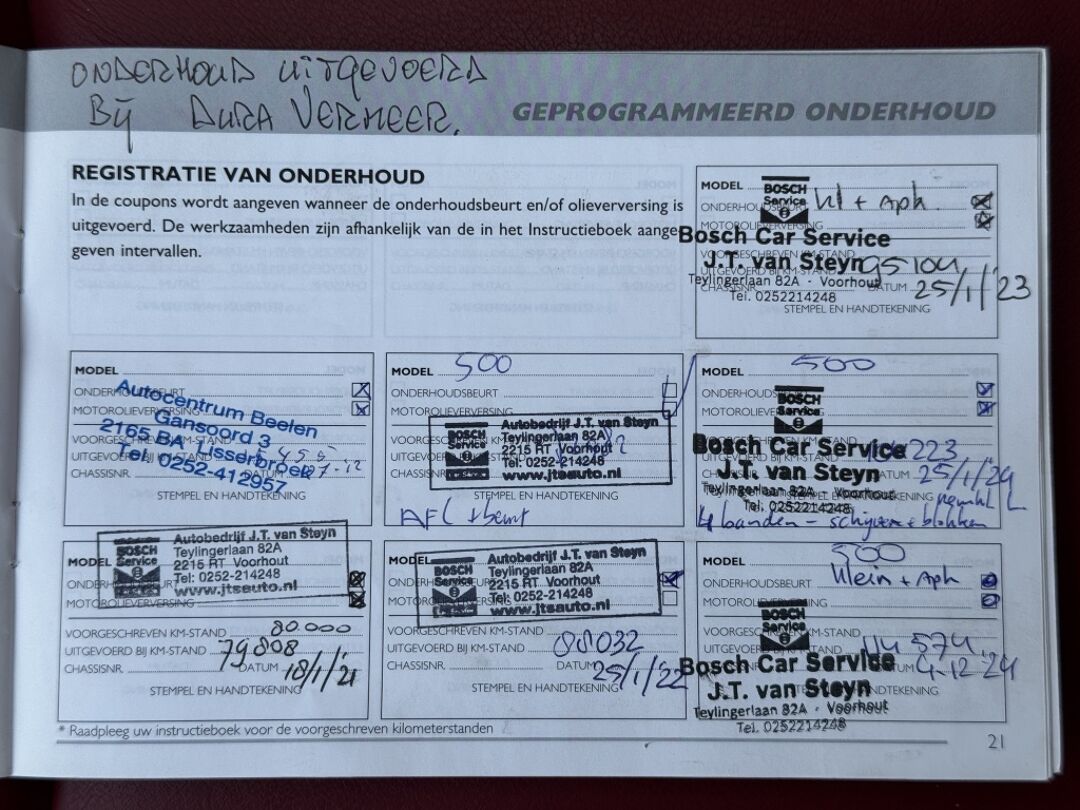 ONDERHOUD UITGEVOERD
Bij DURA VERMEER.
GEPROGRAMMEERD ONDERHOUD
REGISTRATIE VAN ONDERHOUD
In de coupons wordt aangeven wanneer de onderhoudsbeurt en/of olieverversing is
uitgevoerd. De werkzaamheden zijn afhankelijk van de in het Instructieboek aange-
geven intervallen.
MODEL
BOSCH
Service
kl + Aph.
ONDERHOUDSBEURT
MOTOROLIEVERVERSING
Bosch Car Service
VOORGESCHREVEN KM-STAND
J.T. van Steyn
UITGEVOERD BIJ KM-STAND 95104
Teylingerlaan 82A · Voorhout
CHASSISNR. DATUM 25/1/'23
Tel. 0252214248
STEMPEL EN HANDTEKENING
MODEL
ONDERHOUDSBEURT
MOTOROLIEVERVERSING
Autocentrum Beelen
Gansoord 3
2165 BA IJsserbroek
Tel. 0252-412957
VOORGESCHREVEN KM-STAND
UITGEVOERD BIJ KM-STAND
CHASSISNR. DATUM
STEMPEL EN HANDTEKENING
MODEL 500
ONDERHOUDSBEURT
MOTOROLIEVERVERSING
Autobedrijf J.T. van Steyn
Teylingerlaan 82A
BOSCH
Service
2215 RT Voorhout
Tel: 0252-214248
www.jtsauto.nl
VOORGESCHREVEN KM-STAND
UITGEVOERD BIJ KM-STAND
CHASSISNR.
STEMPEL EN HANDTEKENING
AFL + beurt
MODEL 500
ONDERHOUDSBEURT
BOSCH
Service
MOTOROLIEVERVERSING
Bosch Car Service
VOORGESCHREVEN KM-STAND
J.T. van Steyn
UITGEVOERD BIJ KM-STAND
CHASSISNR. 25/1/'24
Teylingerlaan 82A · Voorhout
STEMPEL EN HANDTEKENING
Tel. 0252214248
4 banden - schijven + blokken
MODEL
BOSCH
Service
Autobedrijf J.T. van Steyn
Teylingerlaan 82A
2215 RT Voorhout
Tel: 0252-214248
www.jtsauto.nl
ONDERHOUDSBEURT
MOTOROLIEVERVERSING
VOORGESCHREVEN KM-STAND 80.000
UITGEVOERD BIJ KM-STAND 79808
CHASSISNR. DATUM 18/1/'21
STEMPEL EN HANDTEKENING
MODEL
BOSCH
Service
Autobedrijf J.T. van Steyn
Teylingerlaan 82A
2215 RT Voorhout
Tel: 0252-214248
www.jtsauto.nl
ONDERHOUDSBEURT
MOTOROLIEVERVERSING
VOORGESCHREVEN KM-STAND
UITGEVOERD BIJ KM-STAND 88032
CHASSISNR. DATUM 25/1/'22
STEMPEL EN HANDTEKENING
MODEL 500
ONDERHOUDSBEURT klein + Aph
MOTOROLIEVERVERSING
BOSCH
Service
VOORGESCHREVEN KM-STAND
UITGEVOERD BIJ KM-STAND 114574
Bosch Car Service
DATUM 4-12-24
J.T. van Steyn
STEMPEL EN HANDTEKENING
Teylingerlaan 82A · Voorhout
Tel. 0252214248
* Raadpleeg uw instructieboek voor de voorgeschreven kilometerstanden
21